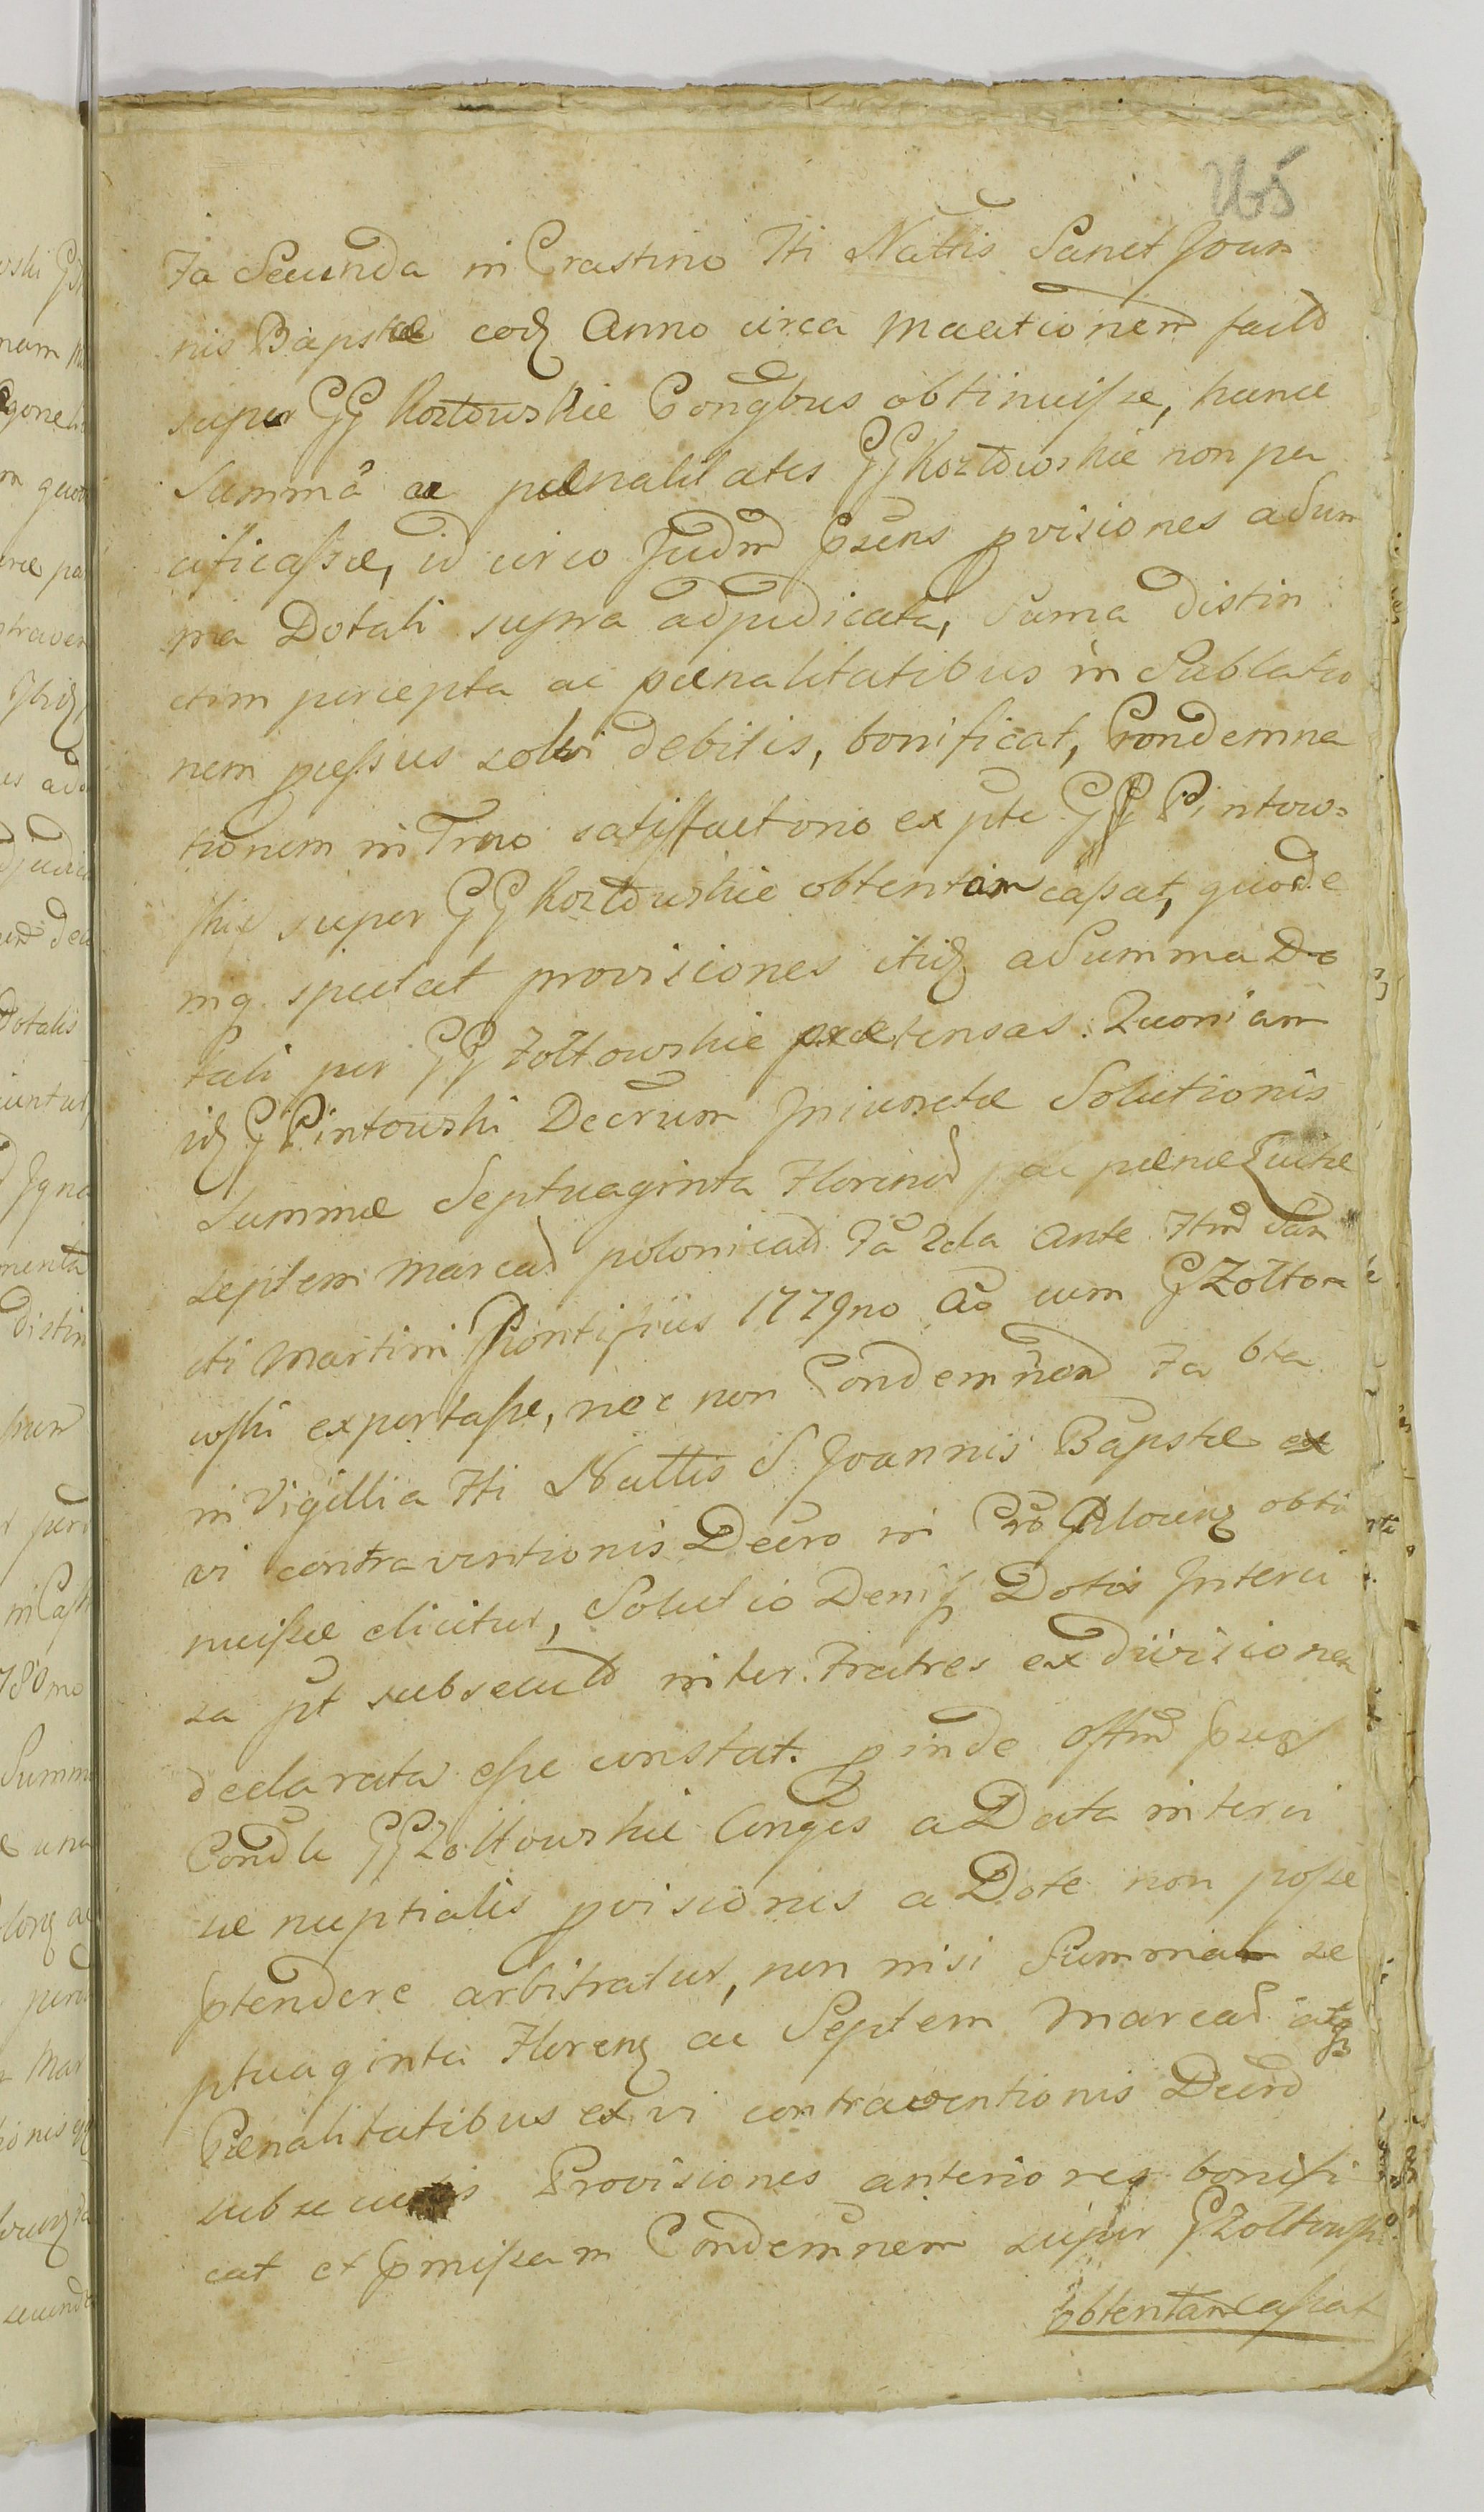 265
Fa Secunda in Crastino Fti Nattis Sanct Joan
nis Bapstæ eod Anno circa Mactionem facta
super GG Kozłowskie Congbus obtinuisse, hanc
Summã ac pœnalitates GG Kozłowskie non pa
cificasse, id circo Judm psens pvisiones a Sum
ma Dotali supra adjudicata, Suma distin
ctim percepta ac pœnalitatibus in Sublatio
nem pessus solvi debitis, bonificat, Condemna
tionem in Trno satisfactorio ex pte GG Pintow=
skie super GG Kozłowskie obtentam cassat, quod e
niq spectat provisiones itid a Summa Do
tali per GG Zołtowskie prætensas. Quoniam
id G Pintowski Decrum Injunctæ Solutionis
Summæ Septuaginta Florinor ac pœnæ Luitæ
septem Marcar polonicar Fa 2da Ante Ftm San
cti Martini Pontificis 1779no Ao cum G Zołto
wski exportasse, nec non Condemnen Fa 6ta
in Vigillia Fti Nattis S Joannis Bapstæ ex
vi contraventionis Decro in Cro obti
nuisse elicitur, Solutio Deniq Dotis Interci
sa pt subsecuta inter Fratres ex divisione
declarata esse constat. pinde Offm psens
Condle GG Zołtowskie Conges a Data interci
sæ nuptialis pvisionis a Dote non posse
ptendere arbitratur, non nisi Summam se
ptuaginta Floren ac Septem Marcar atq
Pœnalitatibus ex vi contraventionis Decro
subsecutis Provisiones anteriores bonifi
cat et pmissam Condemnem super G Zołtowski
obtentam cassat